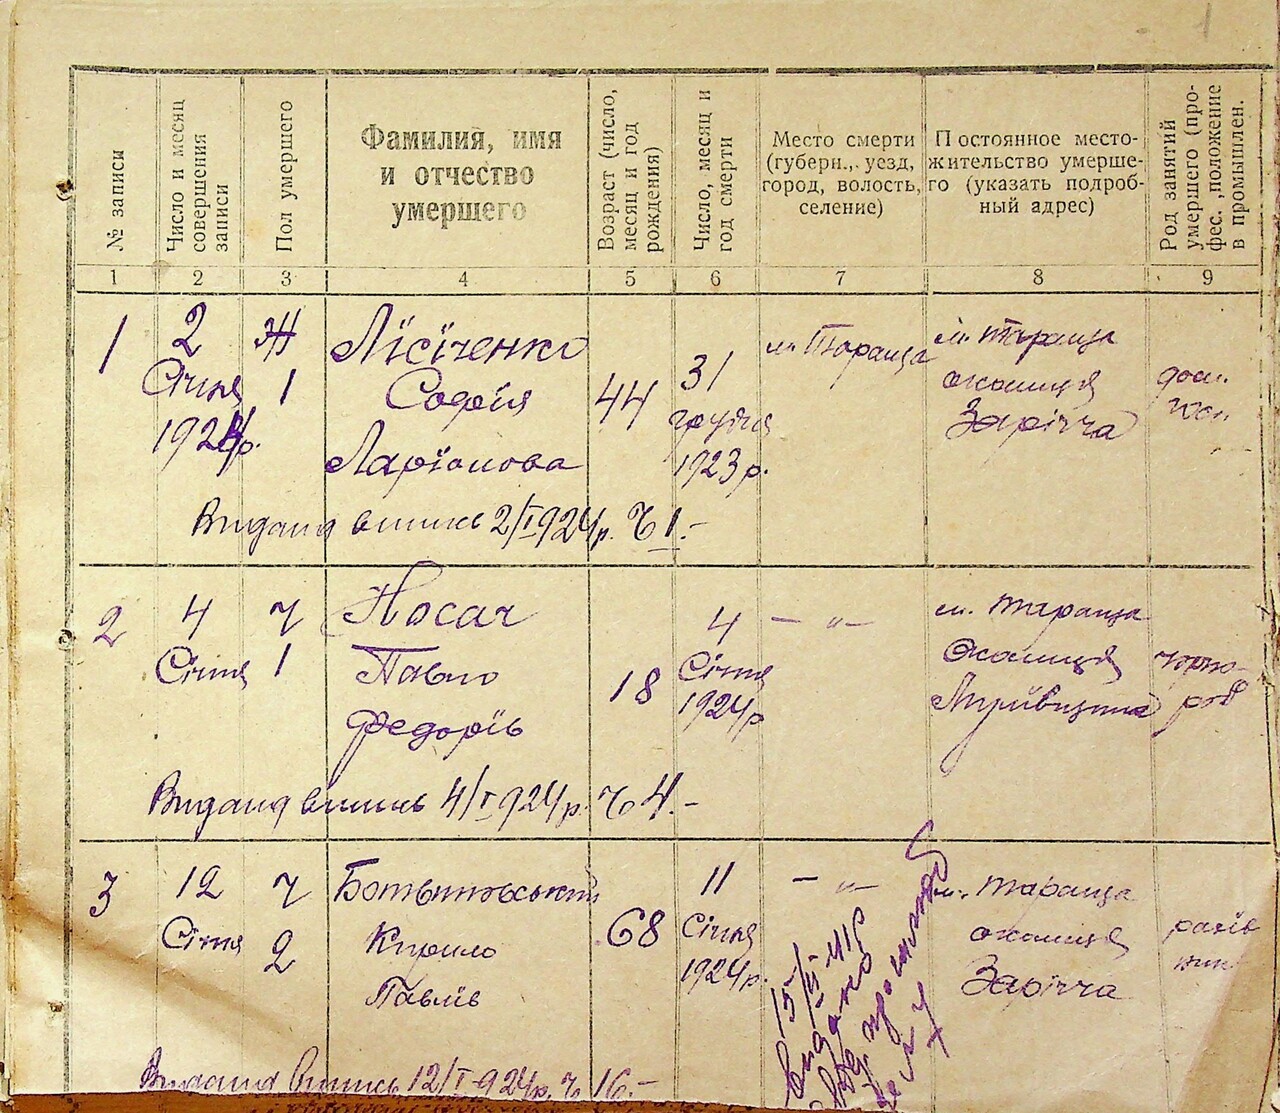 1
№ записи
Число и месяц
совершения
записи
Пол умершего
Фамилия, имя
и отчество
умершего
Возраст (число,
месяц и год
рождения)
Число, месяц и
год смерти
Место смерти
(губерн., уезд,
город, волость,
селение)
Постоянное место-
жительство умерше-
го (указать подроб-
ный адрес)
Род занятий
умершего (про-
фес., положение
в промышлен.
1 2 3 4 5 6 7 8 9
1
2
Січня
1924р.
Ж
1
Лісіченко
Софія
Ларіонова
44
31
грудня
1923 р.
м. Тараща
м. Тараща
околиця
Зарічча
дом.
гос.
Видана випись 2/I 1924р. Ч 1.-
2
4
Січня
Ч
1
Носач
Павло
Федорів
18
4
Січня
1924р
— „ —
м. Тараща
Околиця
чорно-
роб
Видана випись 4/I 924р. Ч 4.-
3
12
Січня
Ч
2
Кирило
Павлів
68
11
Січня
1924р.
— „ —
15/VI-41р
видано
м. Тараща
околиця
Зарічча
Видана випись 12/I-924р. Ч 16.-